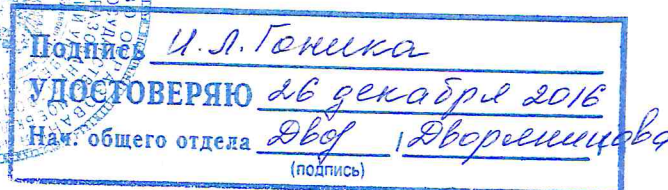 Подпись И.Л. Гоника
УДОСТОВЕРЯЮ 26 декабря 2016
Нач. общего отдела Двор / Дворянинцова
(подпись)